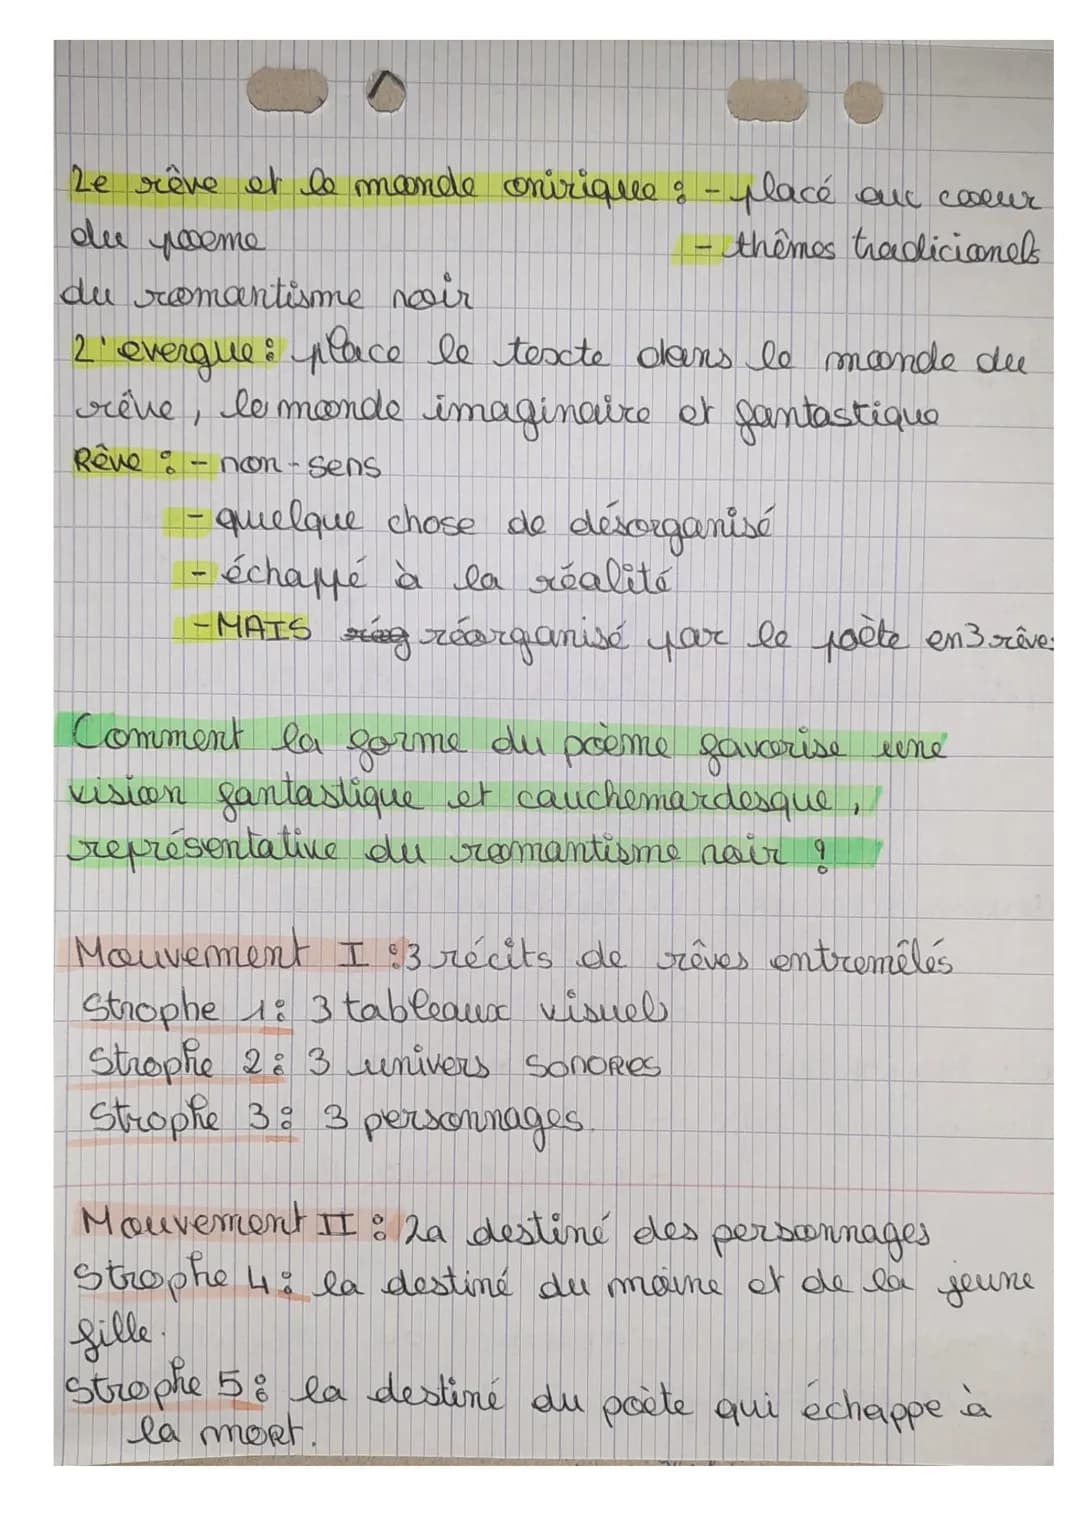 Le rêve et le monde onirique : - placé au coeur
du poeme - thêmes tradicionels
du romantisme noir
L'evergue : place le texte dans le monde du
rêve, le monde imaginaire et fantastique
Rêve : - non-sens
- quelque chose de désorganisé
- échappé à la réalité
- MAIS réorganisé par le poète en 3 rêves
Comment la forme du poème favorise une
vision fantastique et cauchemardesque,
représentative du romantisme noir ?
Mouvement I : 3 récits de rêves entremêlés
Strophe 1 : 3 tableaux visuels
Strophe 2 : 3 univers SONORES
Strophe 3 : 3 personnages.
Mouvement II : La destiné des personnages
Strophe 4 : la destiné du moine et de la jeune
fille.
Strophe 5 : la destiné du poète qui échappe à
la mort.